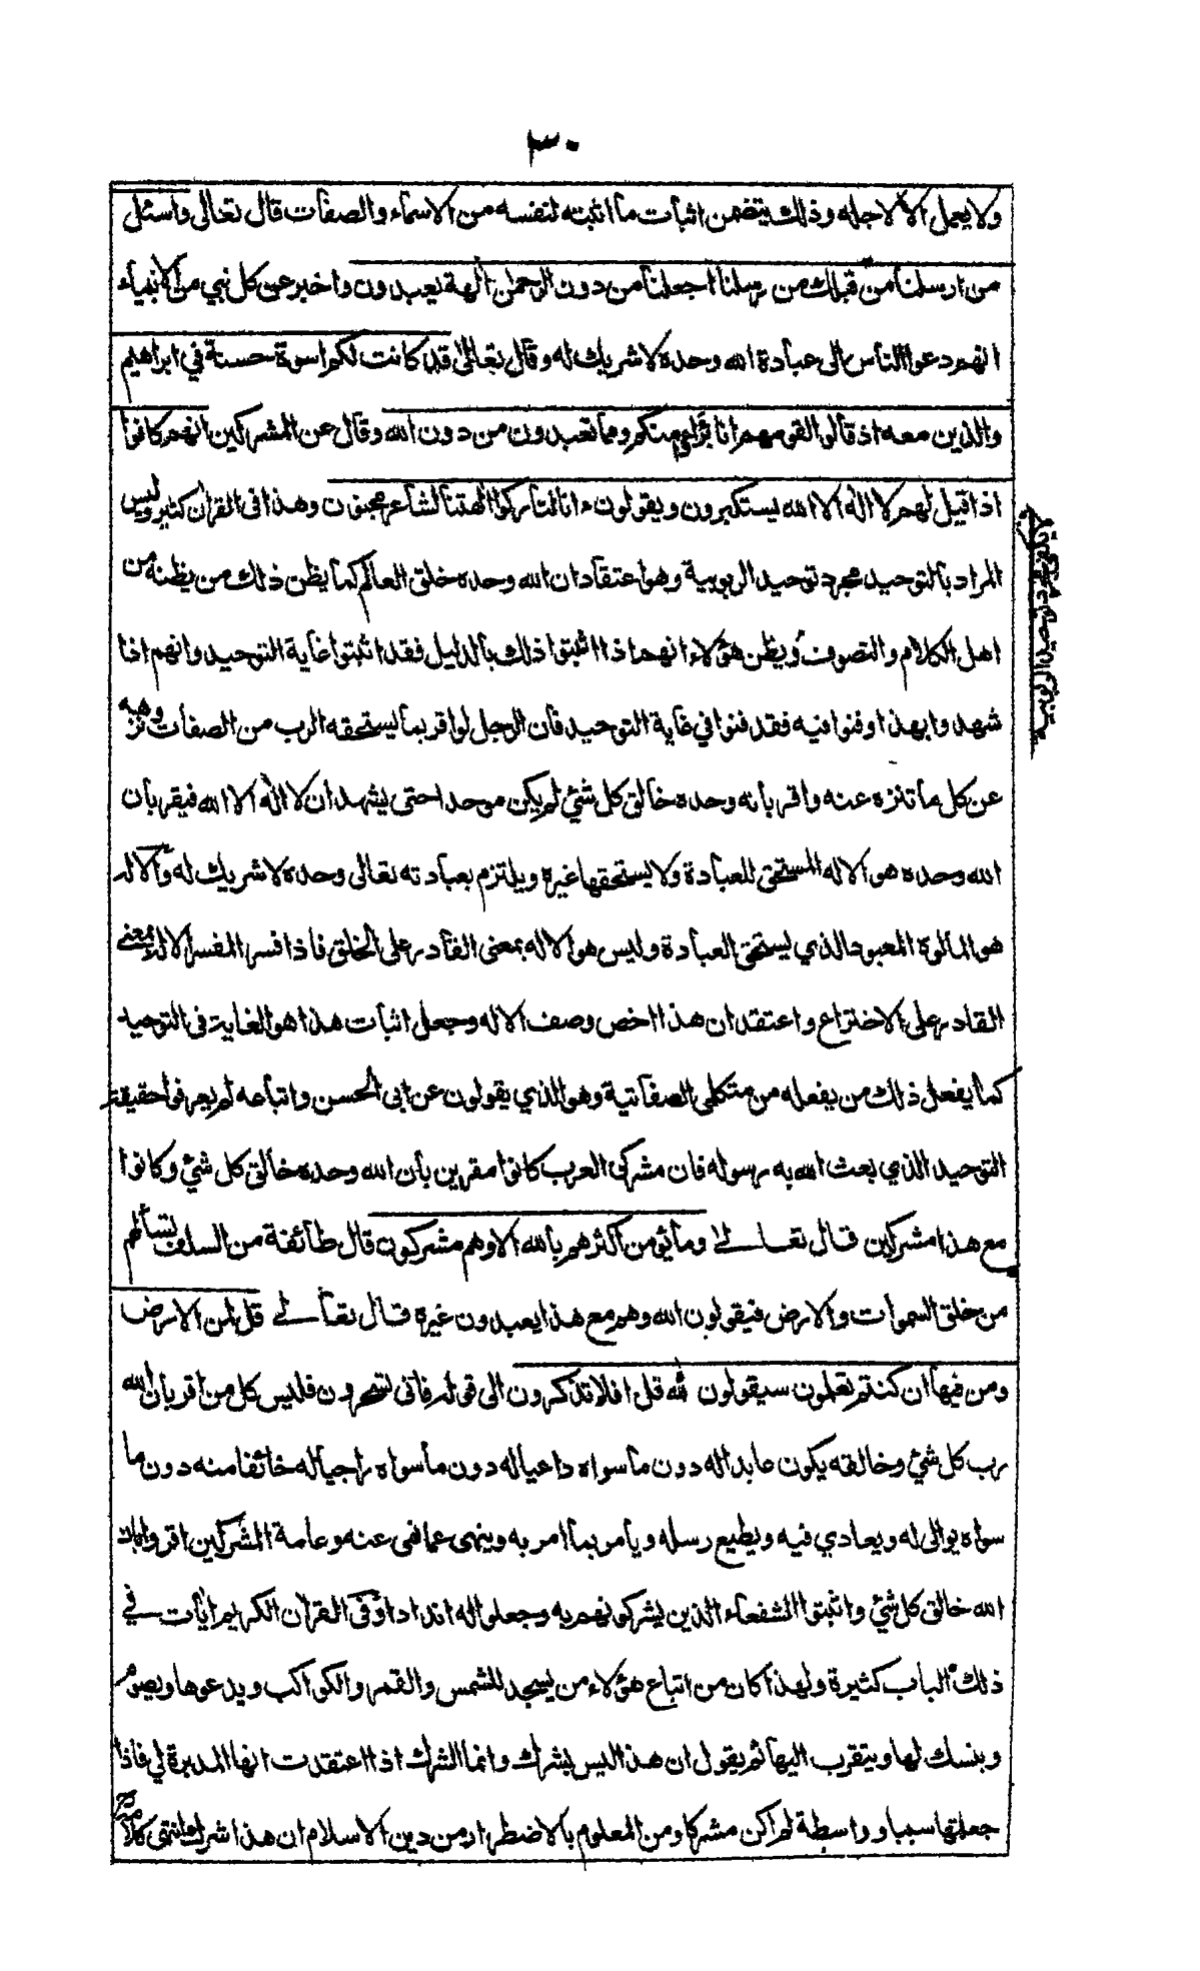 ٣٠
ولا يعمل الا لاجله وذلك يتضمن اثبات ما اثبته لنفسه من الاسماء والصفات قال تعالى واسئل
من ارسلنا من قبلك من رسلنا اجعلنا من دون الرحمن الهة يعبدون واخبر عن كل نبي من الانبياء
انهم دعوا الناس الى عبادة الله وحده لا شريك له وقال تعالى قد كانت لكم اسوة حسنة في ابراهيم
والذين معه اذ قالوا لقومهم انا برآؤ منكم ومما تعبدون من دون الله وقال عن المشركين انهم كانوا
اذا قيل لهم لا اله الا الله يستكبرون ويقولون ءانا لتاركوا الهتنا لشاعر مجنون وهذا في القران كثير وليس
المراد بالتوحيد مجرد توحيد الربوبية وهو اعتقاد ان الله وحده خلق العالم كما يظن ذلك من يظنه من
اهل الكلام والتصوف ويظن هؤلاء انهم اذا اثبتوا ذلك بالدليل فقد اثبتوا غاية التوحيد وانهم اذا
شهدوا بهذا وفنوا فيه فقد فنوا في غاية التوحيد فان الرجل لو اقر بما يستحقه الرب من الصفات ونزهه
عن كل ما تنزه عنه واقر بانه وحده خالق كل شئ لم يكن موحدا حتى يشهد ان لا اله الا الله فيقر بان
الله وحده هو الاله المستحق للعبادة ولا يستحقها غيره ويلتزم بعبادته تعالى وحده لا شريك له والاله
هو المالوه المعبود الذي يستحق العبادة وليس هو الاله بمعنى القادر على الخلق فاذا فسر المفسر الاله بمعنى
القادر على الاختراع واعتقد ان هذا اخص وصف الاله وجعل اثبات هذا هو الغاية في التوحيد
كما يفعل ذلك من يفعله من متكلمي الصفاتية وهو الذي يقولون عن ابي الحسن واتباعه لم يعرفوا حقيقة
التوحيد الذي بعث الله به رسوله فان مشركي العرب كانوا مقرين بان الله وحده خالق كل شئ وكانوا
مع هذا مشركين قال تعالى وما يؤمن اكثرهم بالله الا وهم مشركون قال طائفة من السلف تسألهم
من خلق السموات والارض فيقولون الله وهم مع هذا يعبدون غيره قال تعالى قل لمن الارض
ومن فيها ان كنتم تعلمون سيقولون لله قل افلا تذكرون الى قوله فانى تسحرون فليس كل من اقر بان الله
رب كل شئ وخالقه يكون عابدا له دون ما سواه داعيا له دون ما سواه راجيا له خائفا منه دون ما
سواه يوالي له ويعادي فيه ويطيع رسله ويأمر بما امر به وينهى عما نهى عنه وعامة المشركين اقروا بان
الله خالق كل شئ واثبتوا الشفعاء الذين يشركونهم به وجعلوا له اندادا وفي القرآن الكريم آيات في
ذلك الباب كثيرة ولهذا كان من اتباع هؤلاء من يسجد للشمس والقمر والكواكب ويدعوها ويصوم
وينسك لها ويتقرب اليها ثم يقول ان هذا ليس بشرك وانما الشرك اذا اعتقدت انها المدبرة لي فاذا
جعلتها سببا وواسطة لم اكن مشركا ومن المعلوم بالاضطرار من دين الاسلام ان هذا شرك وانتهى كلامه